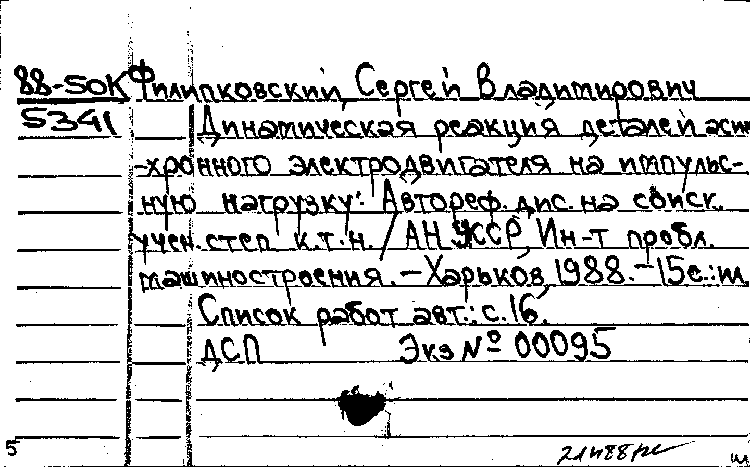 88-50К Филипковский, Сергей Владимирович
5341 Динамическая реакция деталей асин
-хронного электродвигателя на импульс-
ную нагрузку: Автореф. дис. на соиск.
учен. степ к.т.н. / АН УССР, Ин-т пробл.
машиностроения. – Харьков, 1988. – 15с.: ил.
Список работ авт.: с. 16.
ДСП Экз № 00095
5